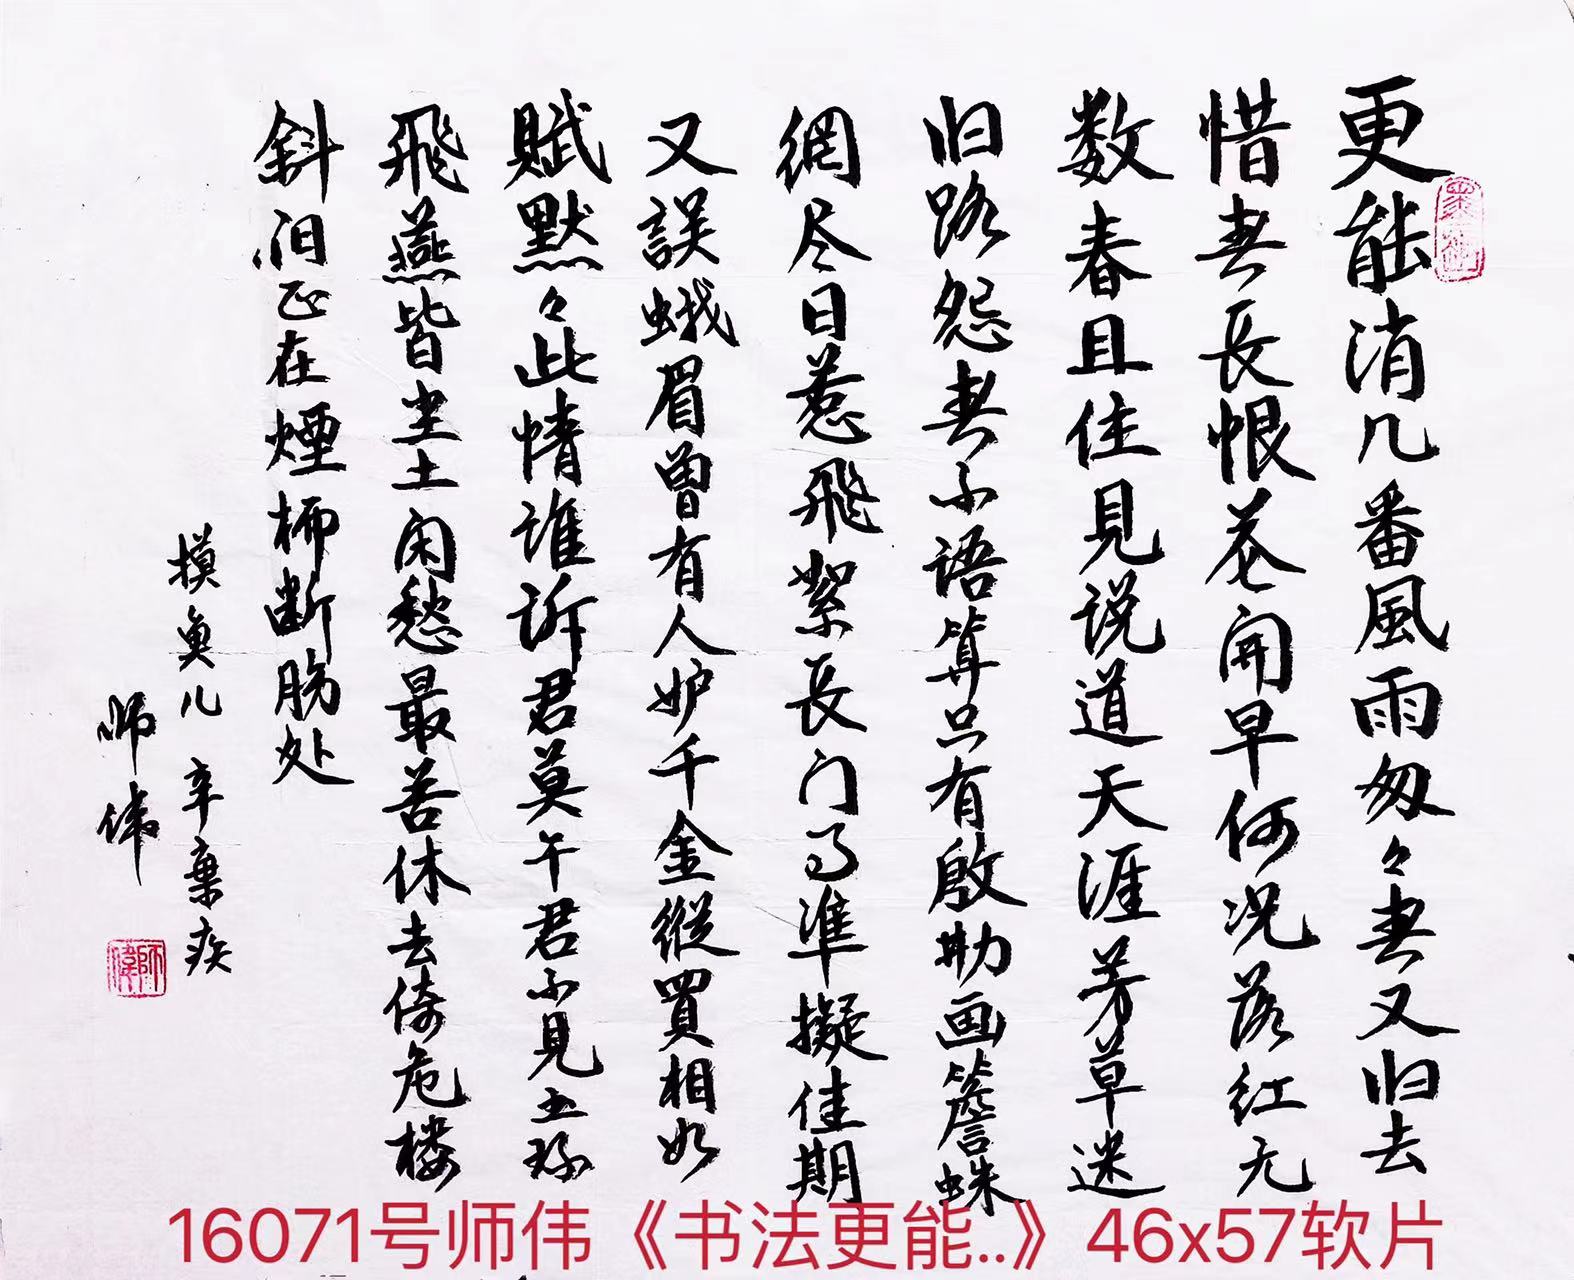 更能消几番風雨匆々春又归去
惜春長恨花開早何况落红无
数春且住見说道天涯芳草迷
归路怨春不语算只有殷勤画簷蛛
網尽日惹飛絮長门事準擬佳期
又誤蛾眉曾有人妒千金縱買相如
賦默々此情谁诉君莫午君不見玉环
飛燕皆尘土闲愁最苦休去倚危楼
斜阳正在煙柳断肠处
摸鱼儿 辛棄疾
师伟
師偉
16071号师伟《书法更能..》46x57软片